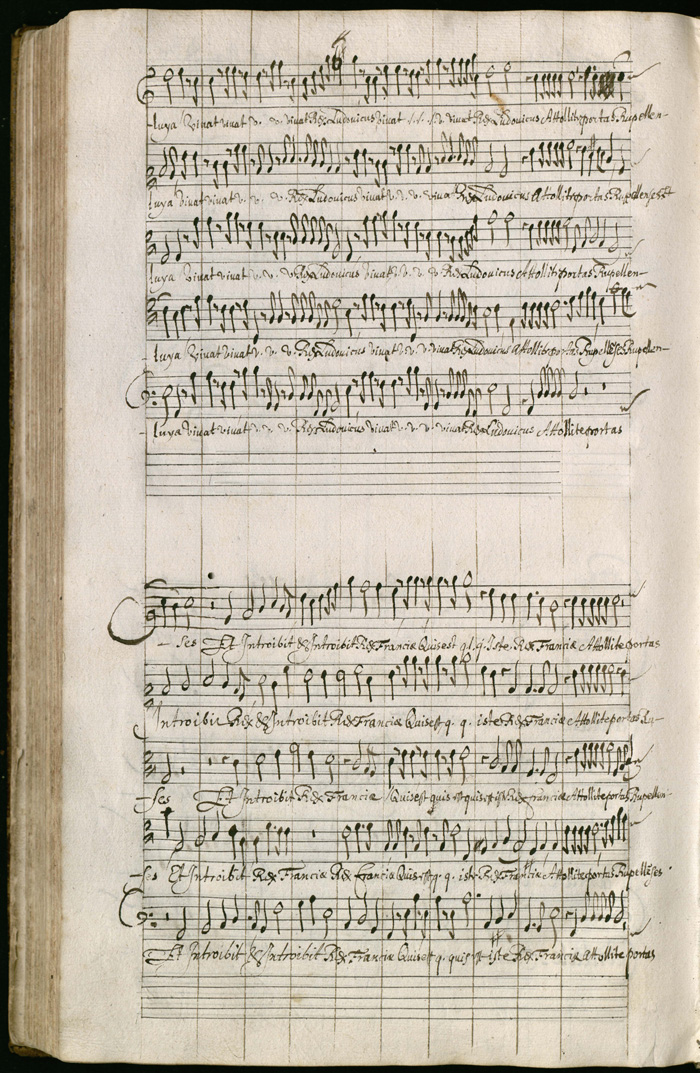 -luya Vivat vivat v. v. vivat Rex Ludovicus vivat v. v. v. vivat Rex Ludovicus Attollite portas Rupellen-
luya Vivat vivat v. v. v. Rex Ludovicus vivat v. v. v. viva Rex Ludovicus Attollite portas Rupellenses Et
luya Vivat vivat v. v. v. Rex Ludovicus vivat v. v. v. Rex Ludovicus Attollite portas Rupellen-
-luya Vivat vivat v. v. v. Rex Ludovicus vivat v. v. vivat Rex Ludovicus Attollite portas Rupellēses Rupellen-
-luya vivat vivat v. v. v. Rex Ludovicus vivat v. v. v. vivat Rex Ludovicus Attollite portas
-ses Et Introibit & Introibit Rex Franciæ Quis est q. q. iste Rex Franciæ Attollite portas
Introibit Rex & Introibit Rex Franciæ Quis est q. q. iste Rex Franciæ Attollite portas Ru-
-ses Et Introibit Rex Franciæ Quis est quis est quis est iste Rex franciæ Attollite portas Rupellen-
-ses Et Introibit Rex Franciæ Rex franciæ Quis est q. q. iste Rex Franciæ Attollite portas Rupellēses
Et Introibit & Introibit Rex Franciæ Quis est q. quis est iste Rex Franciæ Attollite portas